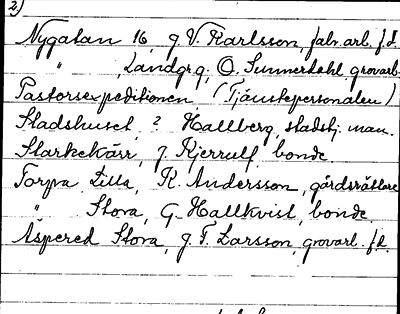 2)
Nygatan 16, J. V. Karlsson, fabr. arb. f.d.
" , Landgr. g., O. Sunnerdahl, grovarb.
Pastorsexpeditionen, (Tjänstepersonalen)
Stadshuset, ? Hallberg, stadstj. man.
Starkekärr, J. Kjerrulf, bonde
Torpa Lilla, K. Andersson, gårdsrättare
" Stora, G. Hallkvist, bonde
Äspered Stora, J. F. Larsson, grovarb. f.d.